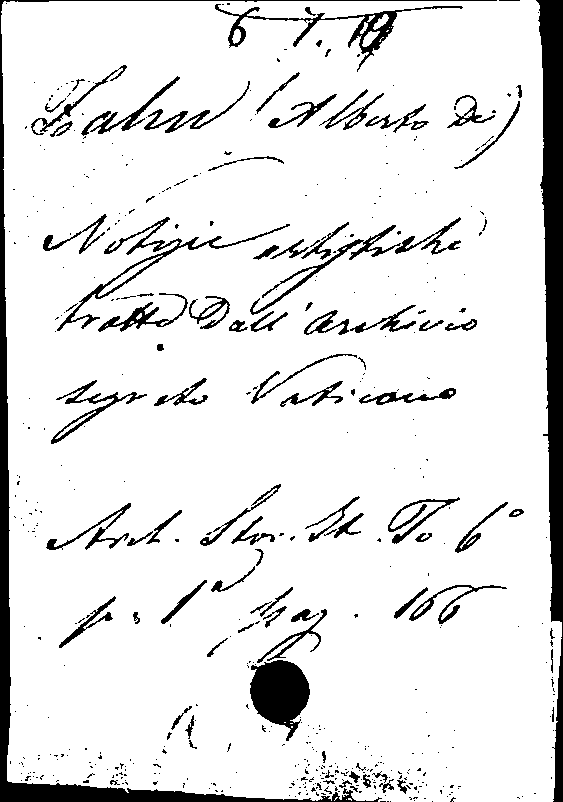 6 7. 19
Zahn (Alberto Di)
Notizie artistiche
tratte Dall' Archivio
segreto Vaticano
Arch. Stor. It. To 6°
p. 1ª pag. 166